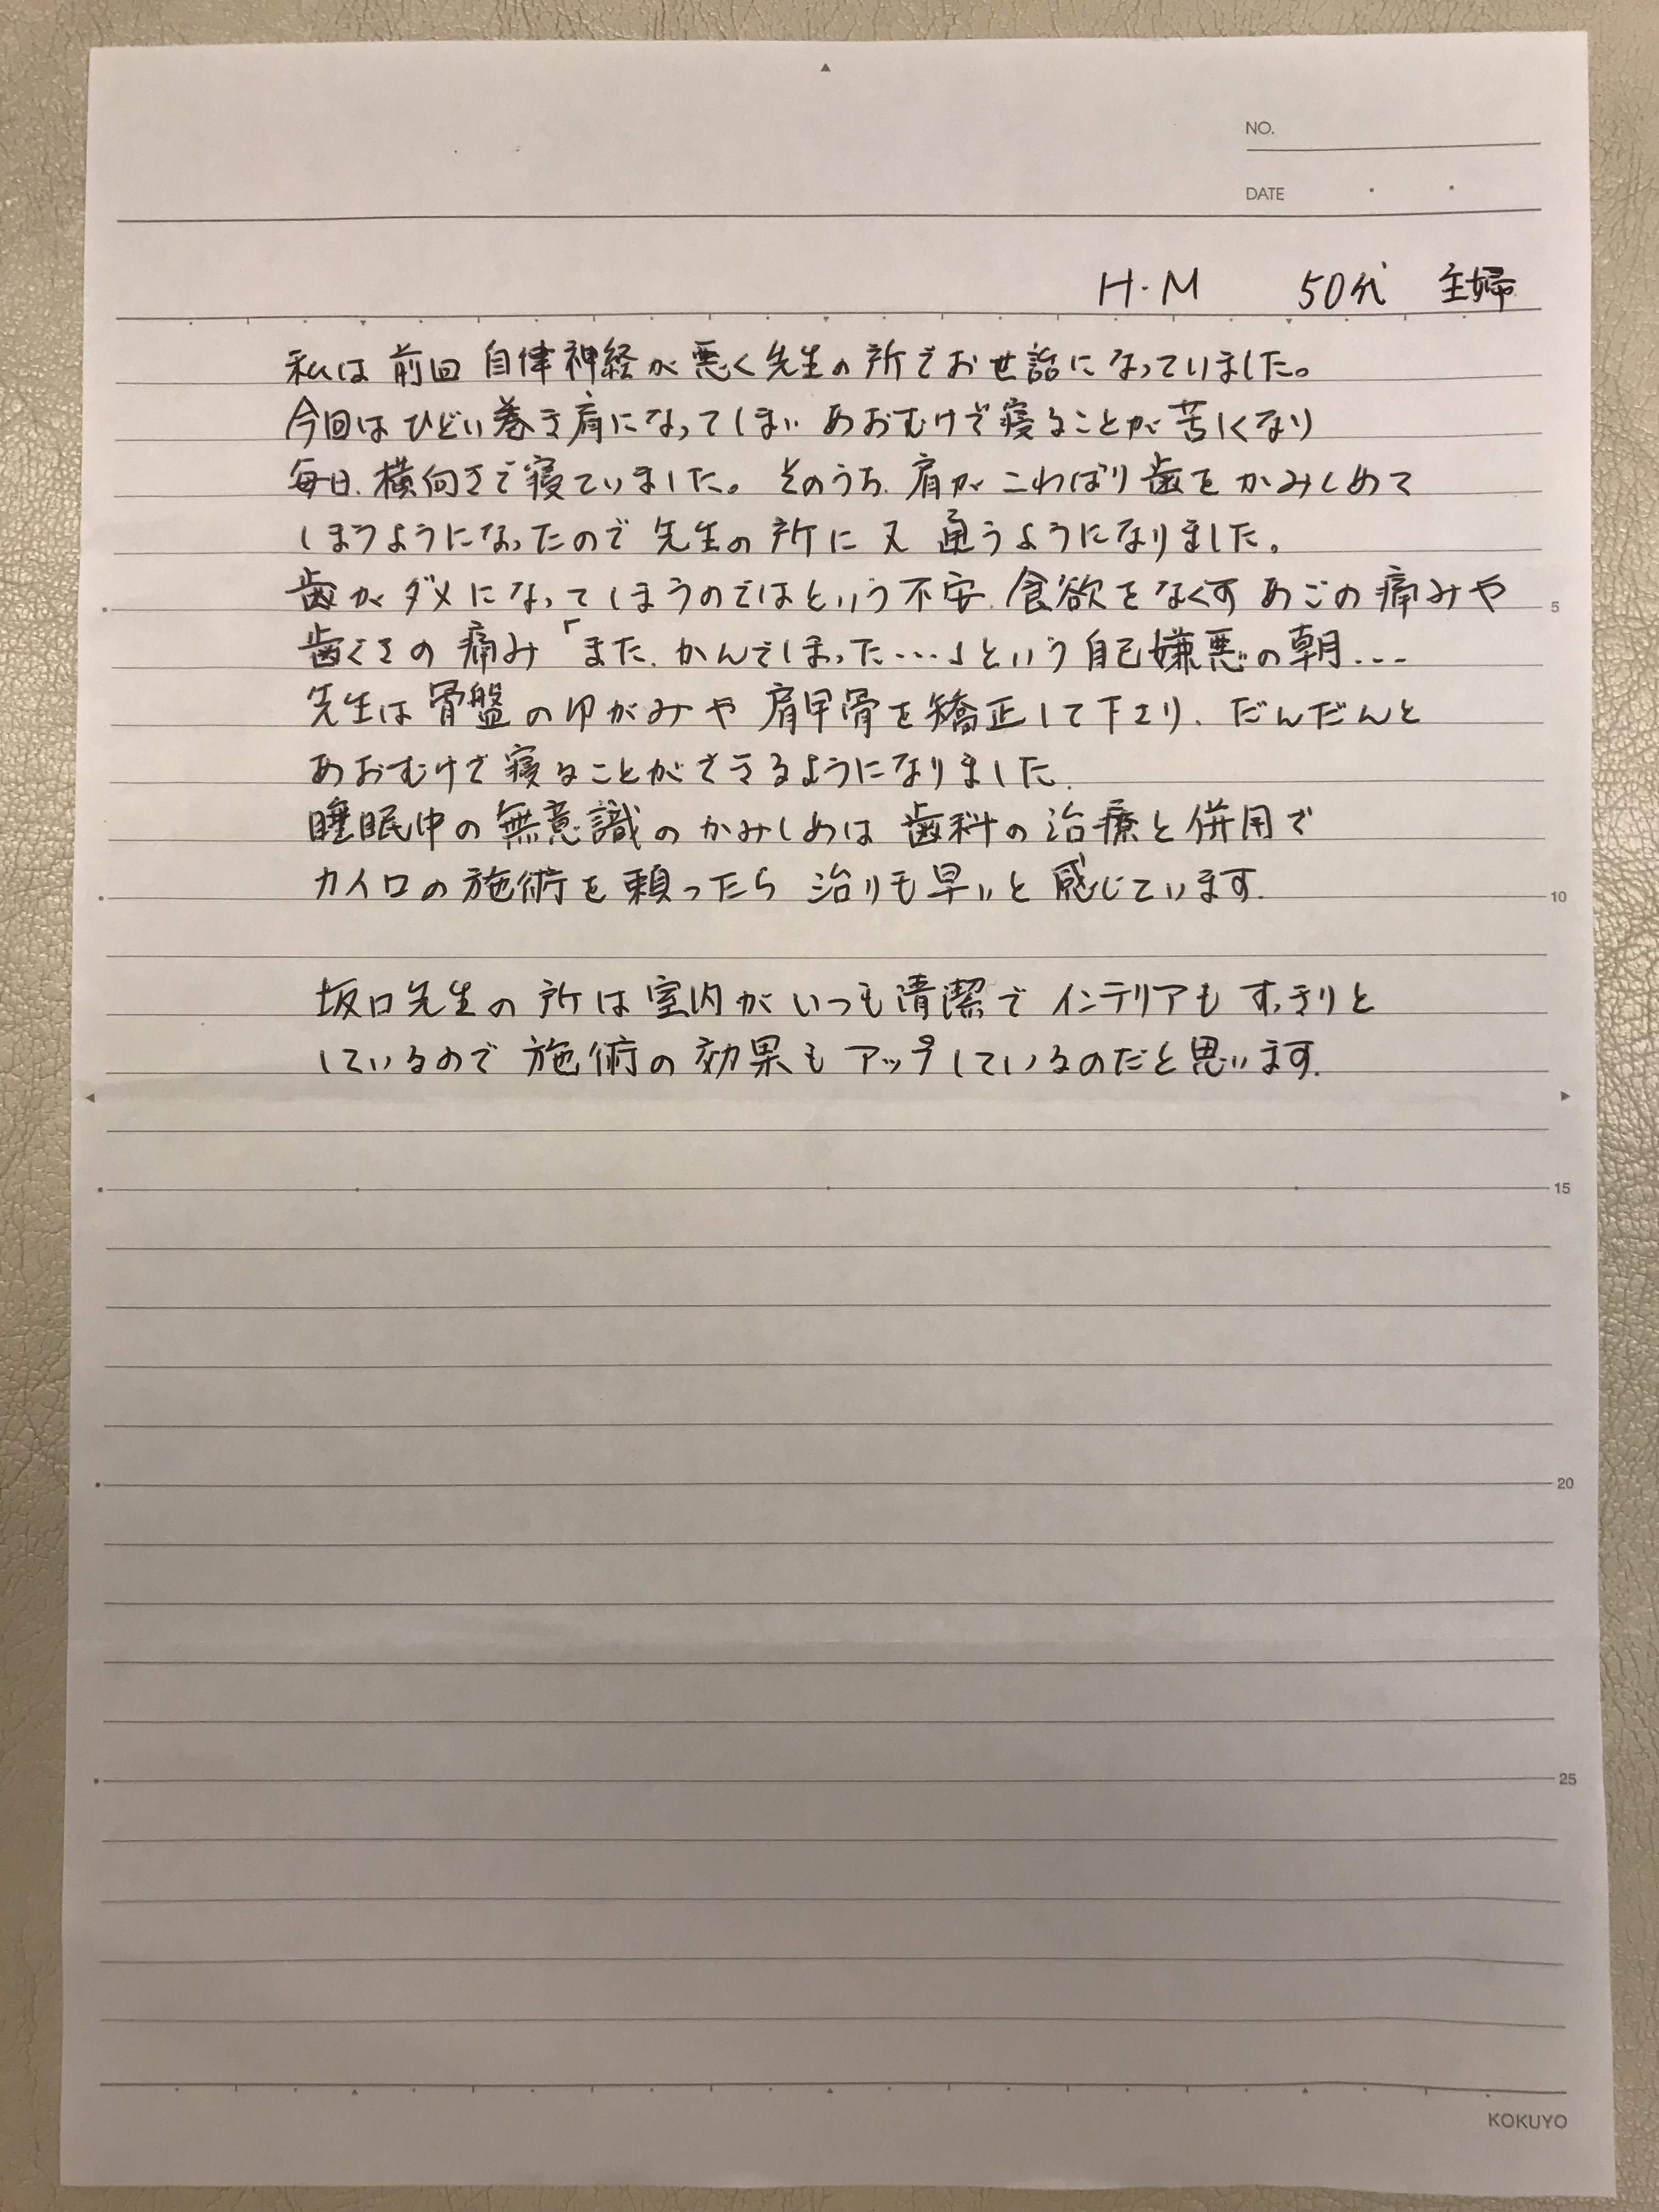 NO.
DATE
H・M 50代 主婦
私は 前回 自律神経が 悪く先生の 所でお世話になっていました。
今回は ひどい巻き肩になってしまい あおむけで寝ることが 苦しくなり
毎日、横向きで寝ていました。 そのうち、肩が こわばり 歯を かみしめて
しまうようになったので 先生の 所に 又 通うようになりました。
歯が ダメになってしまうのではという不安、食欲をなくす あごの痛みや
歯ぐきの 痛み「また、かんでしまった・・・・」という 自己嫌悪の朝...
先生は 骨盤のゆがみや 肩甲骨を矯正して下さり、だんだんと
あおむけで 寝ることができるようになりました。
睡眠中の 無意識の かみしめは 歯科の 治療と併用で
カイロの施術を 頼ったら 治りも早いと 感じています。
坂口先生の 所は 室内が いつも清潔で インテリアも すっきりと
しているので 施術の 効果も アップしているのだと思います。
5
10
15
20
25
KOKUYO